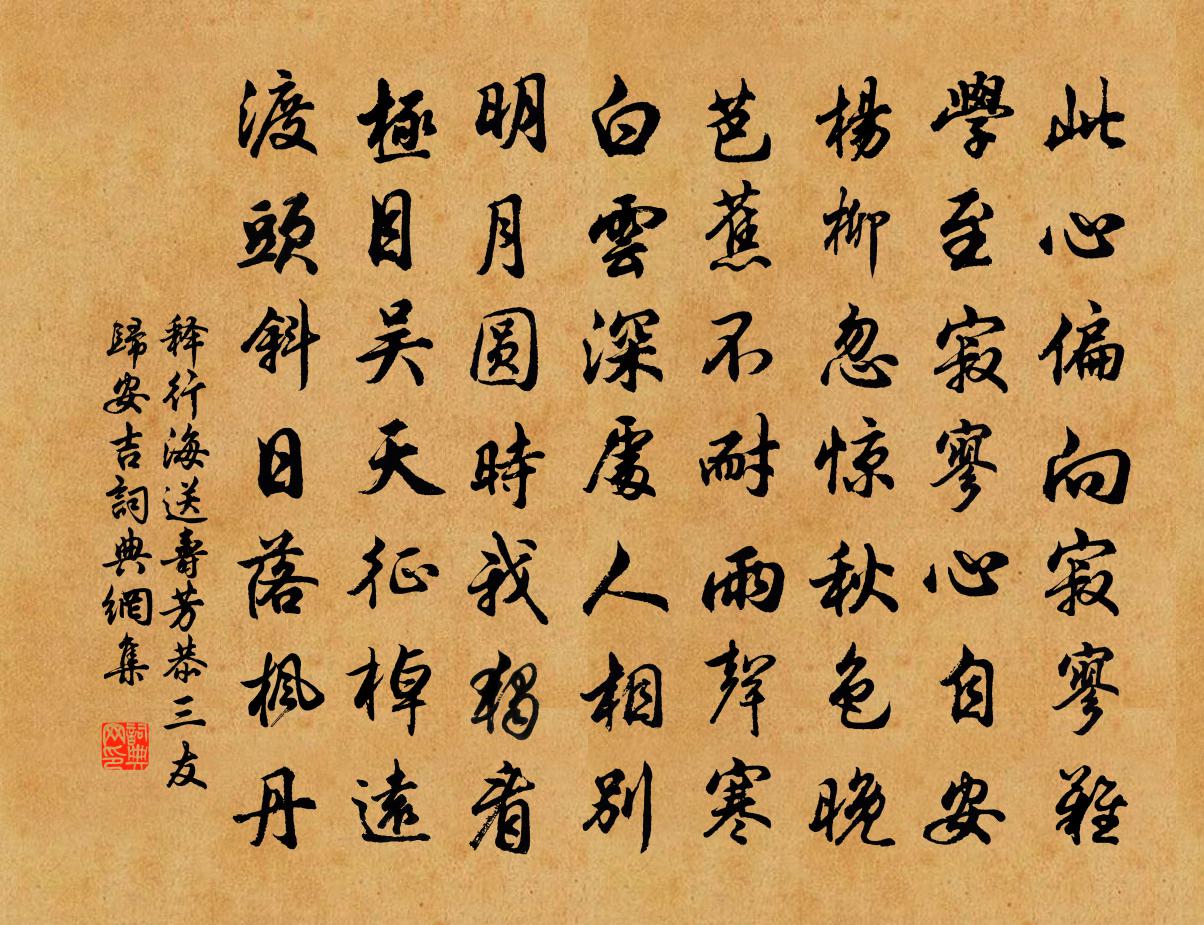 此心偏向寂寥難
學至寂寥心自安
楊柳忽惊秋色晚
芭蕉不耐雨聲寒
白雲深處人相別
明月圆時我獨看
極目吴天征棹遠
渡頭斜日落楓丹
释行海送壽芳恭三友
歸安吉詞典網集
詞典網印